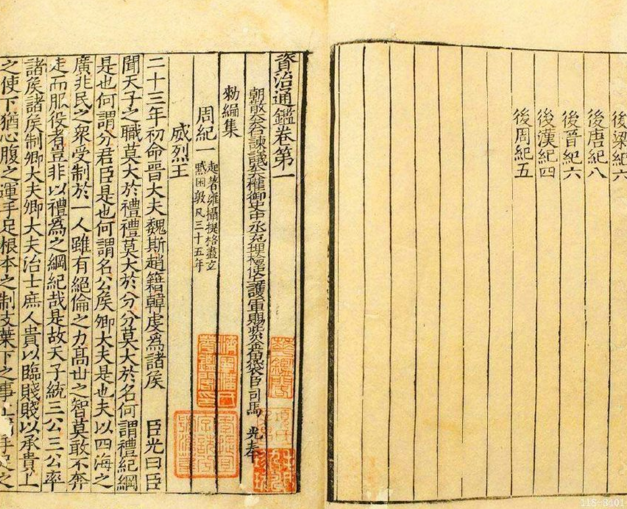 後梁紀六
後唐紀八
後晉紀六
後漢紀四
後周紀五
資治通鑑卷第一
朝散大夫右諫議大夫權御史中丞充理檢使上護軍賜紫金魚袋臣司馬光奉
勑編集
周紀一
起著雍攝提格盡玄
黓困敦凡三十五年
威烈王
二十三年初命晉大夫魏斯趙籍韓虔為諸侯 臣光曰臣
聞天子之職莫大於禮禮莫大於分分莫大於名何謂禮紀綱
是也何謂分君臣是也何謂名公侯卿大夫是也夫以四海之
廣兆民之衆受制於一人雖有絕倫之力高世之智莫敢不奔
走而服役者豈非以禮為之綱紀哉是故天子統三公三公率
諸侯諸侯制卿大夫卿大夫治士庶人貴以臨賤賤以承貴上
之使下猶心腹之運手足根本之制支葉下之事上 手足之